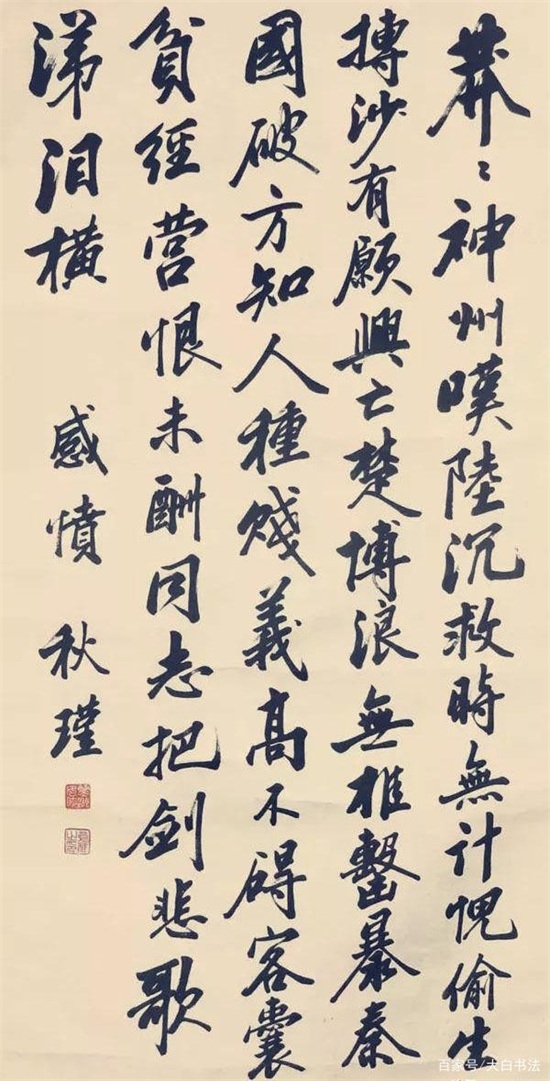 莽〻神州嘆陸沉救時無計愧偷生
摶沙有願興亡楚博浪無椎擊暴秦
國破方知人種賤義高不碍客囊
貧經營恨未酬同志把劍悲歌
涕泪橫
感憤 秋瑾
百家号/大白书法